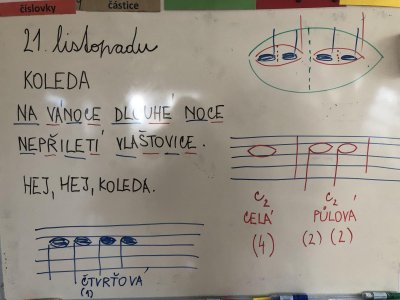 číslovky
částice
21. listopadu
KOLEDA
NA VÁNOCE DLOUHÉ NOCE
NEPŘILETÍ VLAŠTOVICE.
HEJ, HEJ, KOLEDA.
C2 C2
CELÁ PŮLOVÁ
(4) (2) (2)
ČTVRŤOVÁ
(1)